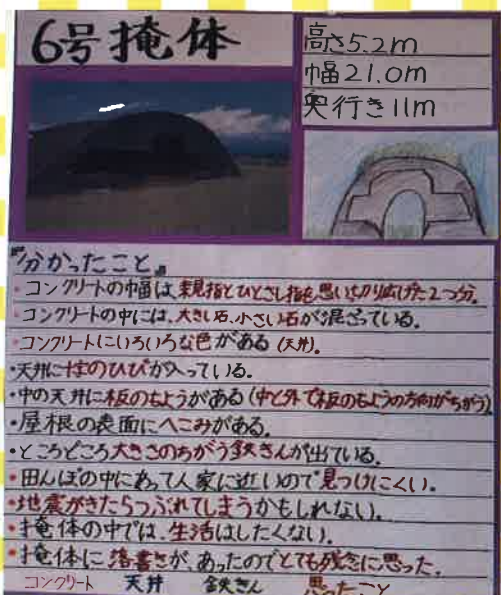 6号掩体
高さ5.2m
幅21.0m
奥行き11m
『分かったこと』
・コンクリートの幅は、親指とひとさし指を思いっきり広げた2つ分。
・コンクリートの中には、大きい石、小さい石が混ざっている。
・コンクリートにいろいろな色がある(天井)。
・天井に柱のひびが入っている。
・中の天井に板のもようがある(中と外で板のもようの方向がちがう)
・屋根の表面にへこみがある。
・ところどころ大きさのちがう鉄きんが出ている。
・田んぼの中にあって人家に近いので見つけにくい。
・地震がきたらつぶれてしまうかもしれない。
・掩体の中では、生活はしたくない。
・掩体に落書きが、あったのでとても残念に思った。
コンクリート 天井 鉄きん 思ったこと